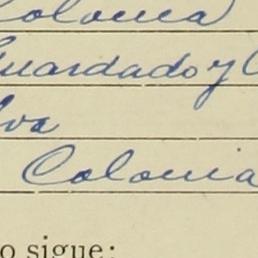 Colonia
Guardado y C
lva
Colonia
o sigue: